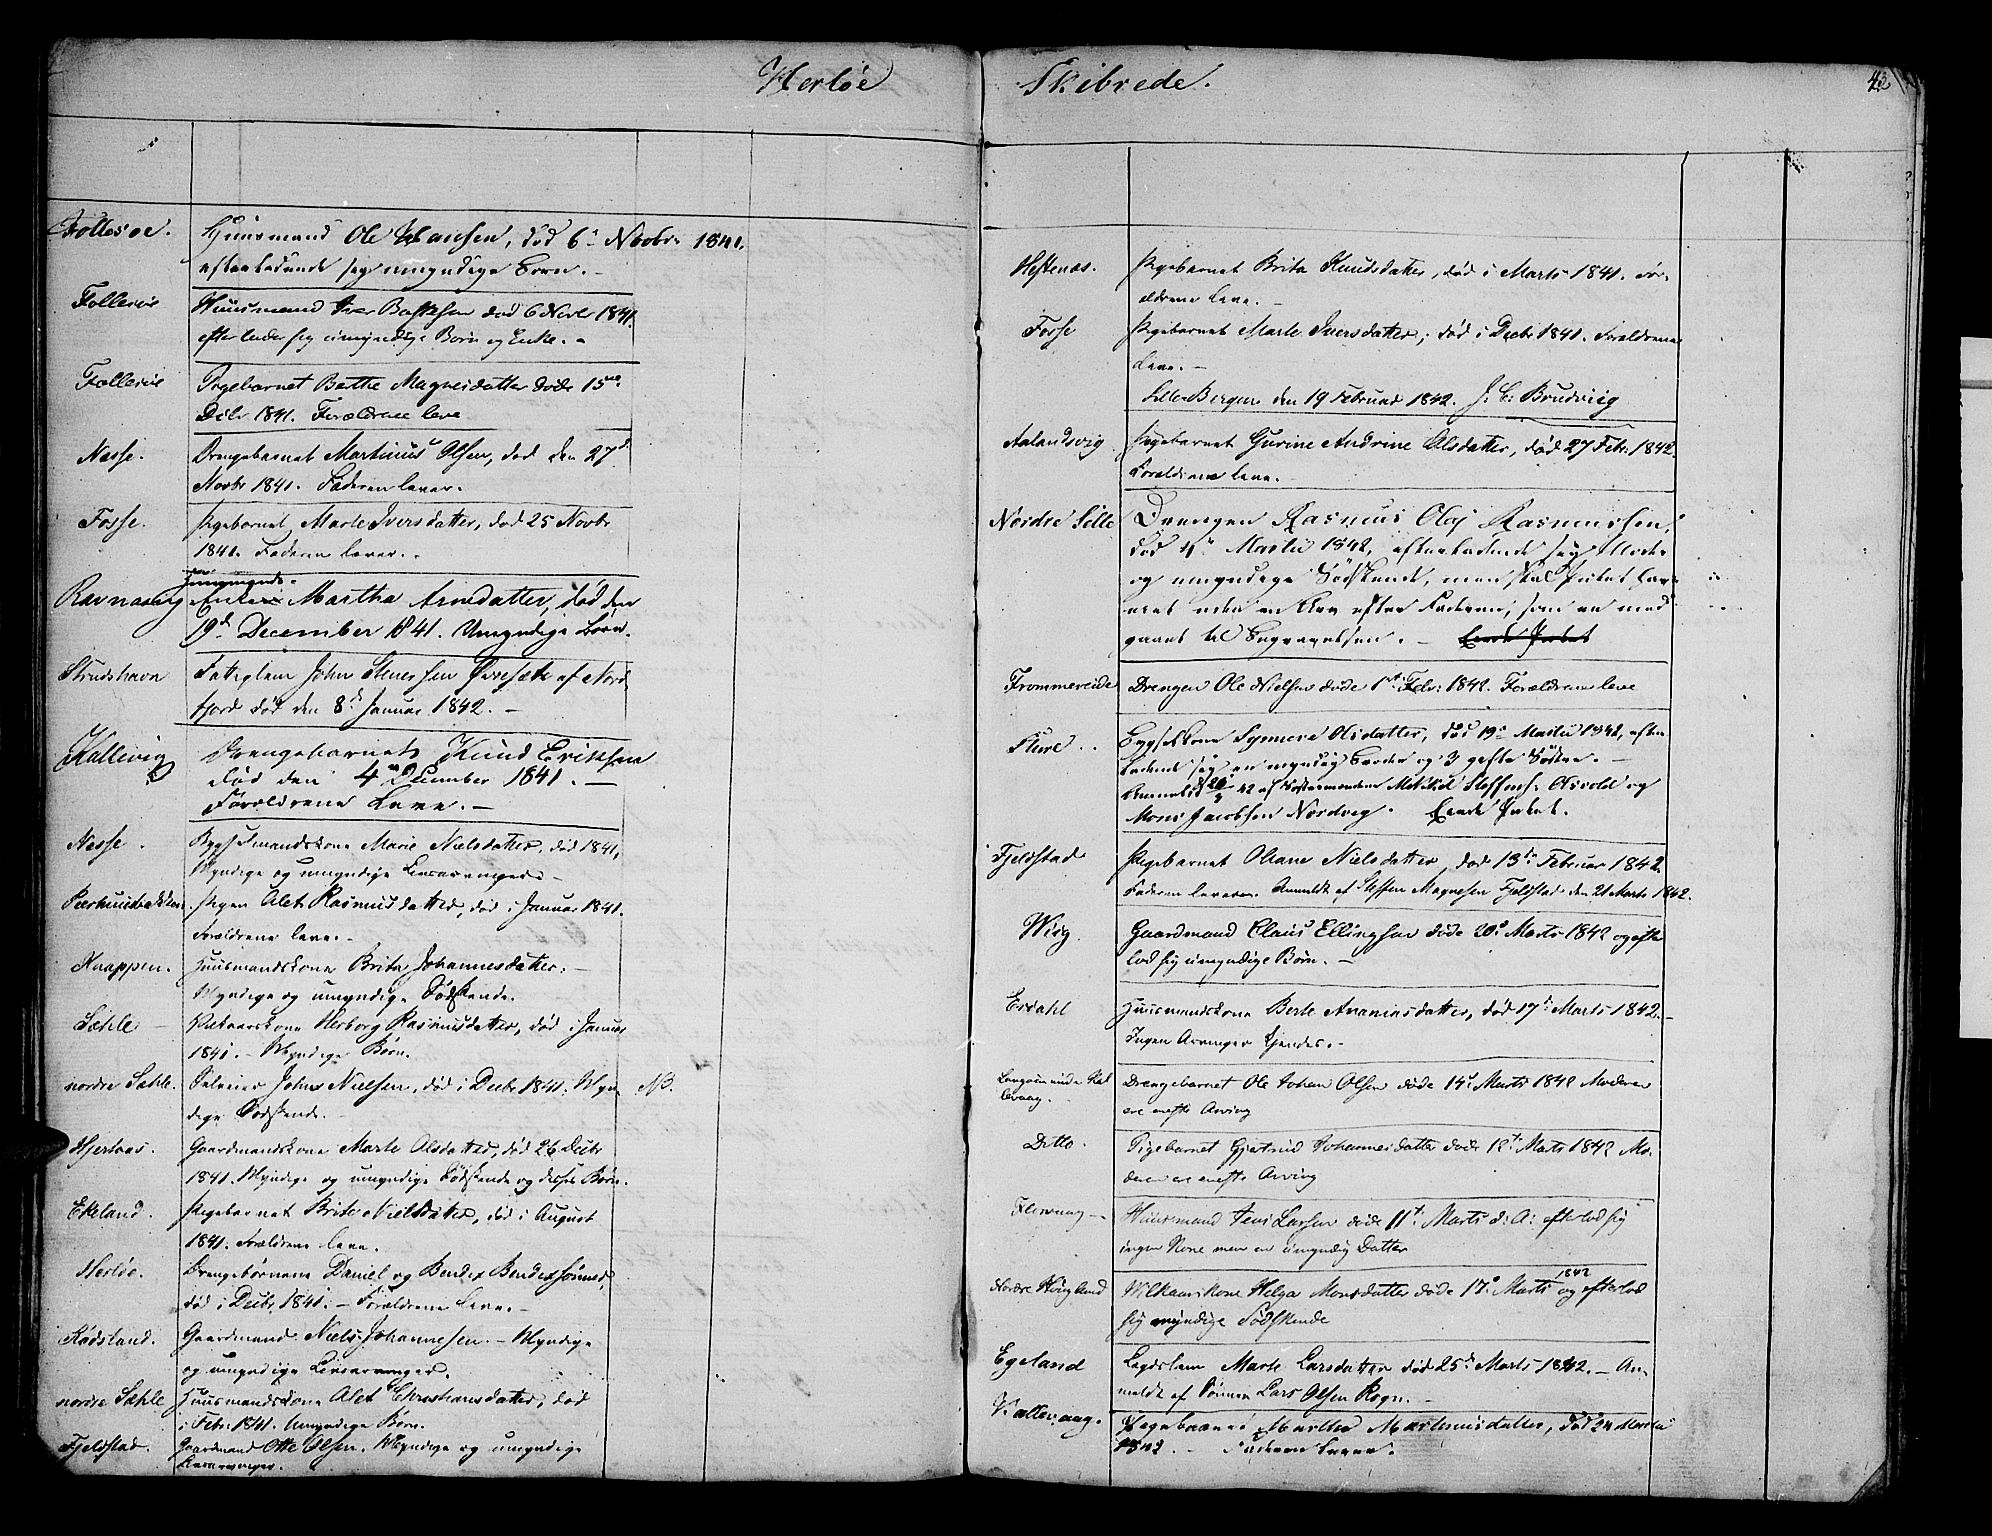 Herløe Skibrede.
42
Follesøe. Huusmand Ole Hansen, død 6te Novbr 1841.
efterladende sig umyndige Børn. -
Follesøe Huusmand Iver død 6 Novbr 1841.
efterlader sig umyndige Børn og Enke. -
Follesøe Pigebarnet Berthe Magnesdatter døde 15de
Dcbr 1841. Forældrene leve
Nesse. Drengebarnet Martinus Olsen, død den 27de
Novbr 1841. Faderen lever.
Fosse. Pigebarnet Marte Iversdatter, død 25 Novbr
1841. Faderen lever. -
Huusmands-
Ravnaang Enken Martha Arnedatter, død den
19de December 1841. Umyndige Børn.
Strudshavn Fattiglem John Stenersen af Nord-
fjord død den 8de Januar 1842. -
Kallevig Drengebarnet Knud Eriksen
død den 4de December 1841. -
Forældrene Leve. -
Nesse. Bygselmandskone Marie Nielsdatter, død 1841,
Myndige og umyndige Livsarvinger -
Pigen Alet Rasmusdatter, død i Januar 1841.
Forældrene leve. -
Knappen. Huusmandskone Brita Johannesdatter. -
Myndige og umyndige Sødskende.
Sæhle - Kaarkone Herborg Rasmusdatter, død i Januar
1841. - Myndige Børn.
nordre Sæhle. John Nielsen, død i Decbr 1841. Myn- NB.
dige Sødskende. -
Hjertaas. Gaardmandskone Marte Olsdatter, død 26 Decbr
1841. Myndige og umyndige Sødskende og disses Børn.
Ekeland. Pigebarnet Brite Nielsdatter, død i August
1841. Forældrene leve.
Herløe. Drengebørnene Daniel og Bendix Bendixsønner,
død i Decbr 1841. - Forældrene leve. -
Rødsland. Gaardmand Niels Johannesen. - Myndige
og umyndige Livsarvinger.
nordre Sæhle Huusmandskone Alet Christiansdatter, død
i Febr. 1841. Umyndige Børn.
Fjeldstad. Gaardmand Otte Olsen. Myndige og umyndige
Livsarvinger.
Heftenæs. Pigebarnet Brita Knudsdatter, død i Marts 1841. For-
ældrene leve. -
Fosse Pigebarnet Marte Iversdatter, død i Decbr 1841. Forældrene
leve. -
Bergen den 19 Februar 1842. J. C. Brudvig
Aalandsvig Pigebarnet Gurine Andrine Olsdatter, død 27 Febr. 1842.
Forældrene leve. -
Nordre Selle Drengen Rasmus Olaj Rasmussen,
død 4de Martii 1842, efterladende sig Moder
og umyndige Sødskende, men skal Intet have
arvet uden en Arv efter Faderen, som er med-
gaaet til Begravelsen. - Eiede Intet
Trommereide Drengen Ole Nielsen døde 1ste Febr. 1842. Forældrene leve
Sture. Bygselkone Synneve Olsdatter, død 19de Martii 1842, efter-
ladende sig en myndig Broder og 3 gifte Søstre. -
Anmeldt 26/3 42 af Steffens. Aasvold og
Mons Jacobsen Nordvig. Eiede Intet.
Fjeldstad Pigebarnet Oliane Nielsdatter, død 13de Februar 1842.
Faderen leverer. Anmeldt af Steffen Magnesen Fjeldstad den 21 Marts 1842.
Wiig. Gaardmand Claus Ellingsen døde 20de Marts 1842 og efter-
lod sig umyndige Børn. -
Erdahl Huusmandskone Berte Ananiasdatter, død 17de Marts 1842. -
Ingen Arvinger kjendes. -
Drengebarnet Ole Johan Olsen døde 14de Marts 1842 Moderen
ere eneste Arving
Ditto. Pigebarnet Gjertrud Johannesdatter døde 12te Marts 1842 Mo-
deren ere eneste Arving
Florvaag - Huusmand Jens Larsen døde 11te Marts d: A: efterlod sig
ingen Kone men en umyndig Datter
1842
Nordre Høigland Vilkaarskone Helga Monsdatter døde 17de Marts og efterlod
sig myndige Sødskende
Egeland Lægdslem Marte Larsdatter død 25de Marts 1842. - An-
meldt af Sønnen Lars Olsen Rogn. -
Vattervaag. Pigebarnet Marthe Martinusdatter, død 24 Martii
1842. - Faderen Lever.